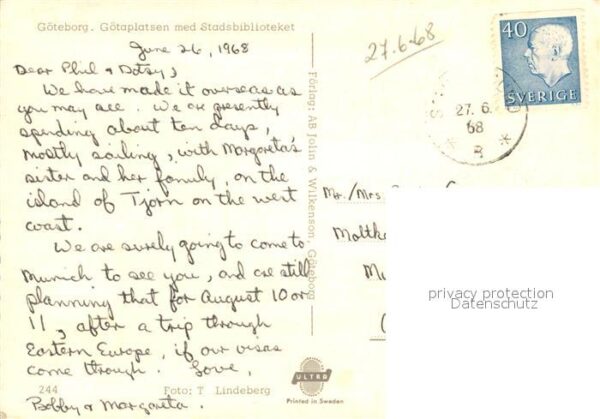 Göteborg. Götaplatsen med Stadsbiblioteket
June 26, 1968
Dear Phil & Dotsy,
We have made it overseas as
you may see. We are presently
spending about ten days,
mostly sailing, with Margareta's
sister and her family, on the
island of Tjörn on the west
coast.
We are surely going to come to
Munich to see you, and are still
planning that for August 10 or
11, after a trip through
Eastern Europe, if our visas
come through. Love,
Bobby & Margareta.
244
Foto: T Lindeberg
Förlag: AB Jolin & Wilkenson, Göteborg
ULTRA
Printed in Sweden
27.6-68
40
SVERIGE
27. 6.
68
Mr./Mrs
Moltke
Mu
privacy protection
Datenschutz